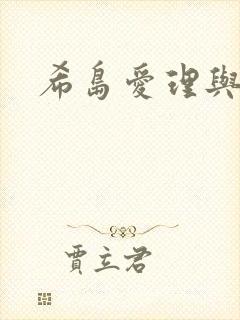 希島愛理與
賈立君